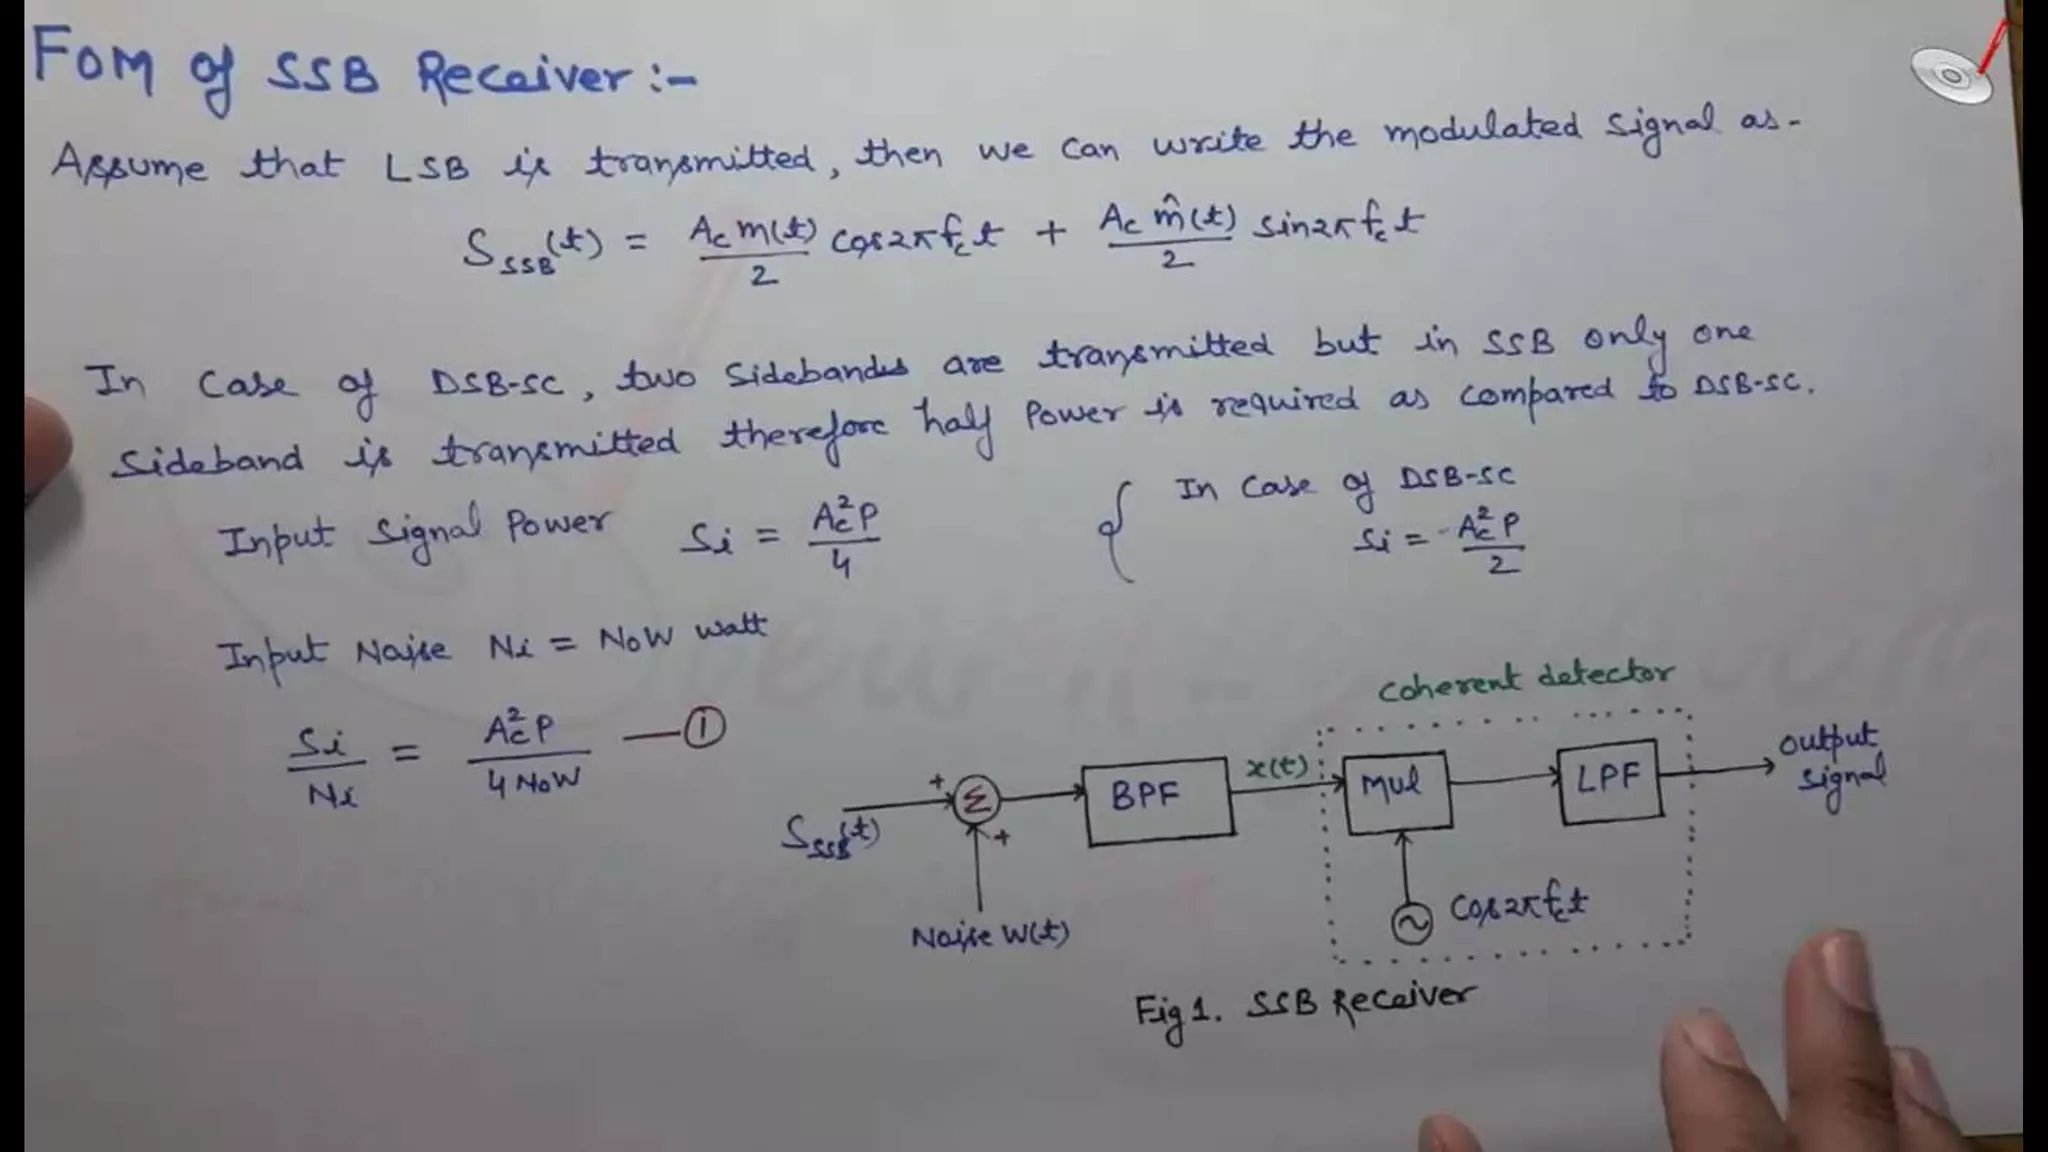 FOM of SSB Receiver:-
Assume that LSB is transmitted, then we can write the modulated signal as-
S_SSB(t) = A_c m(t)/2 cos2πf_c t + A_c m̂(t)/2 sin2πf_c t
In Case of DSB-SC, two Sidebands are transmitted but in SSB only one
Sideband is transmitted therefore half Power is required as compared to DSB-SC.
Input Signal Power Si = A_c²P/4
{ In Case of DSB-SC
Si = A_c²P/2
Input Noise Ni = N₀W watt
Si/Ni = A_c²P/4N₀W —①
Coherent detector
S_SSB(t) + Σ + BPF x(t) Mul LPF output signal
Noise W(t)
~ Cos2πf_c t
Fig 1. SSB Receiver